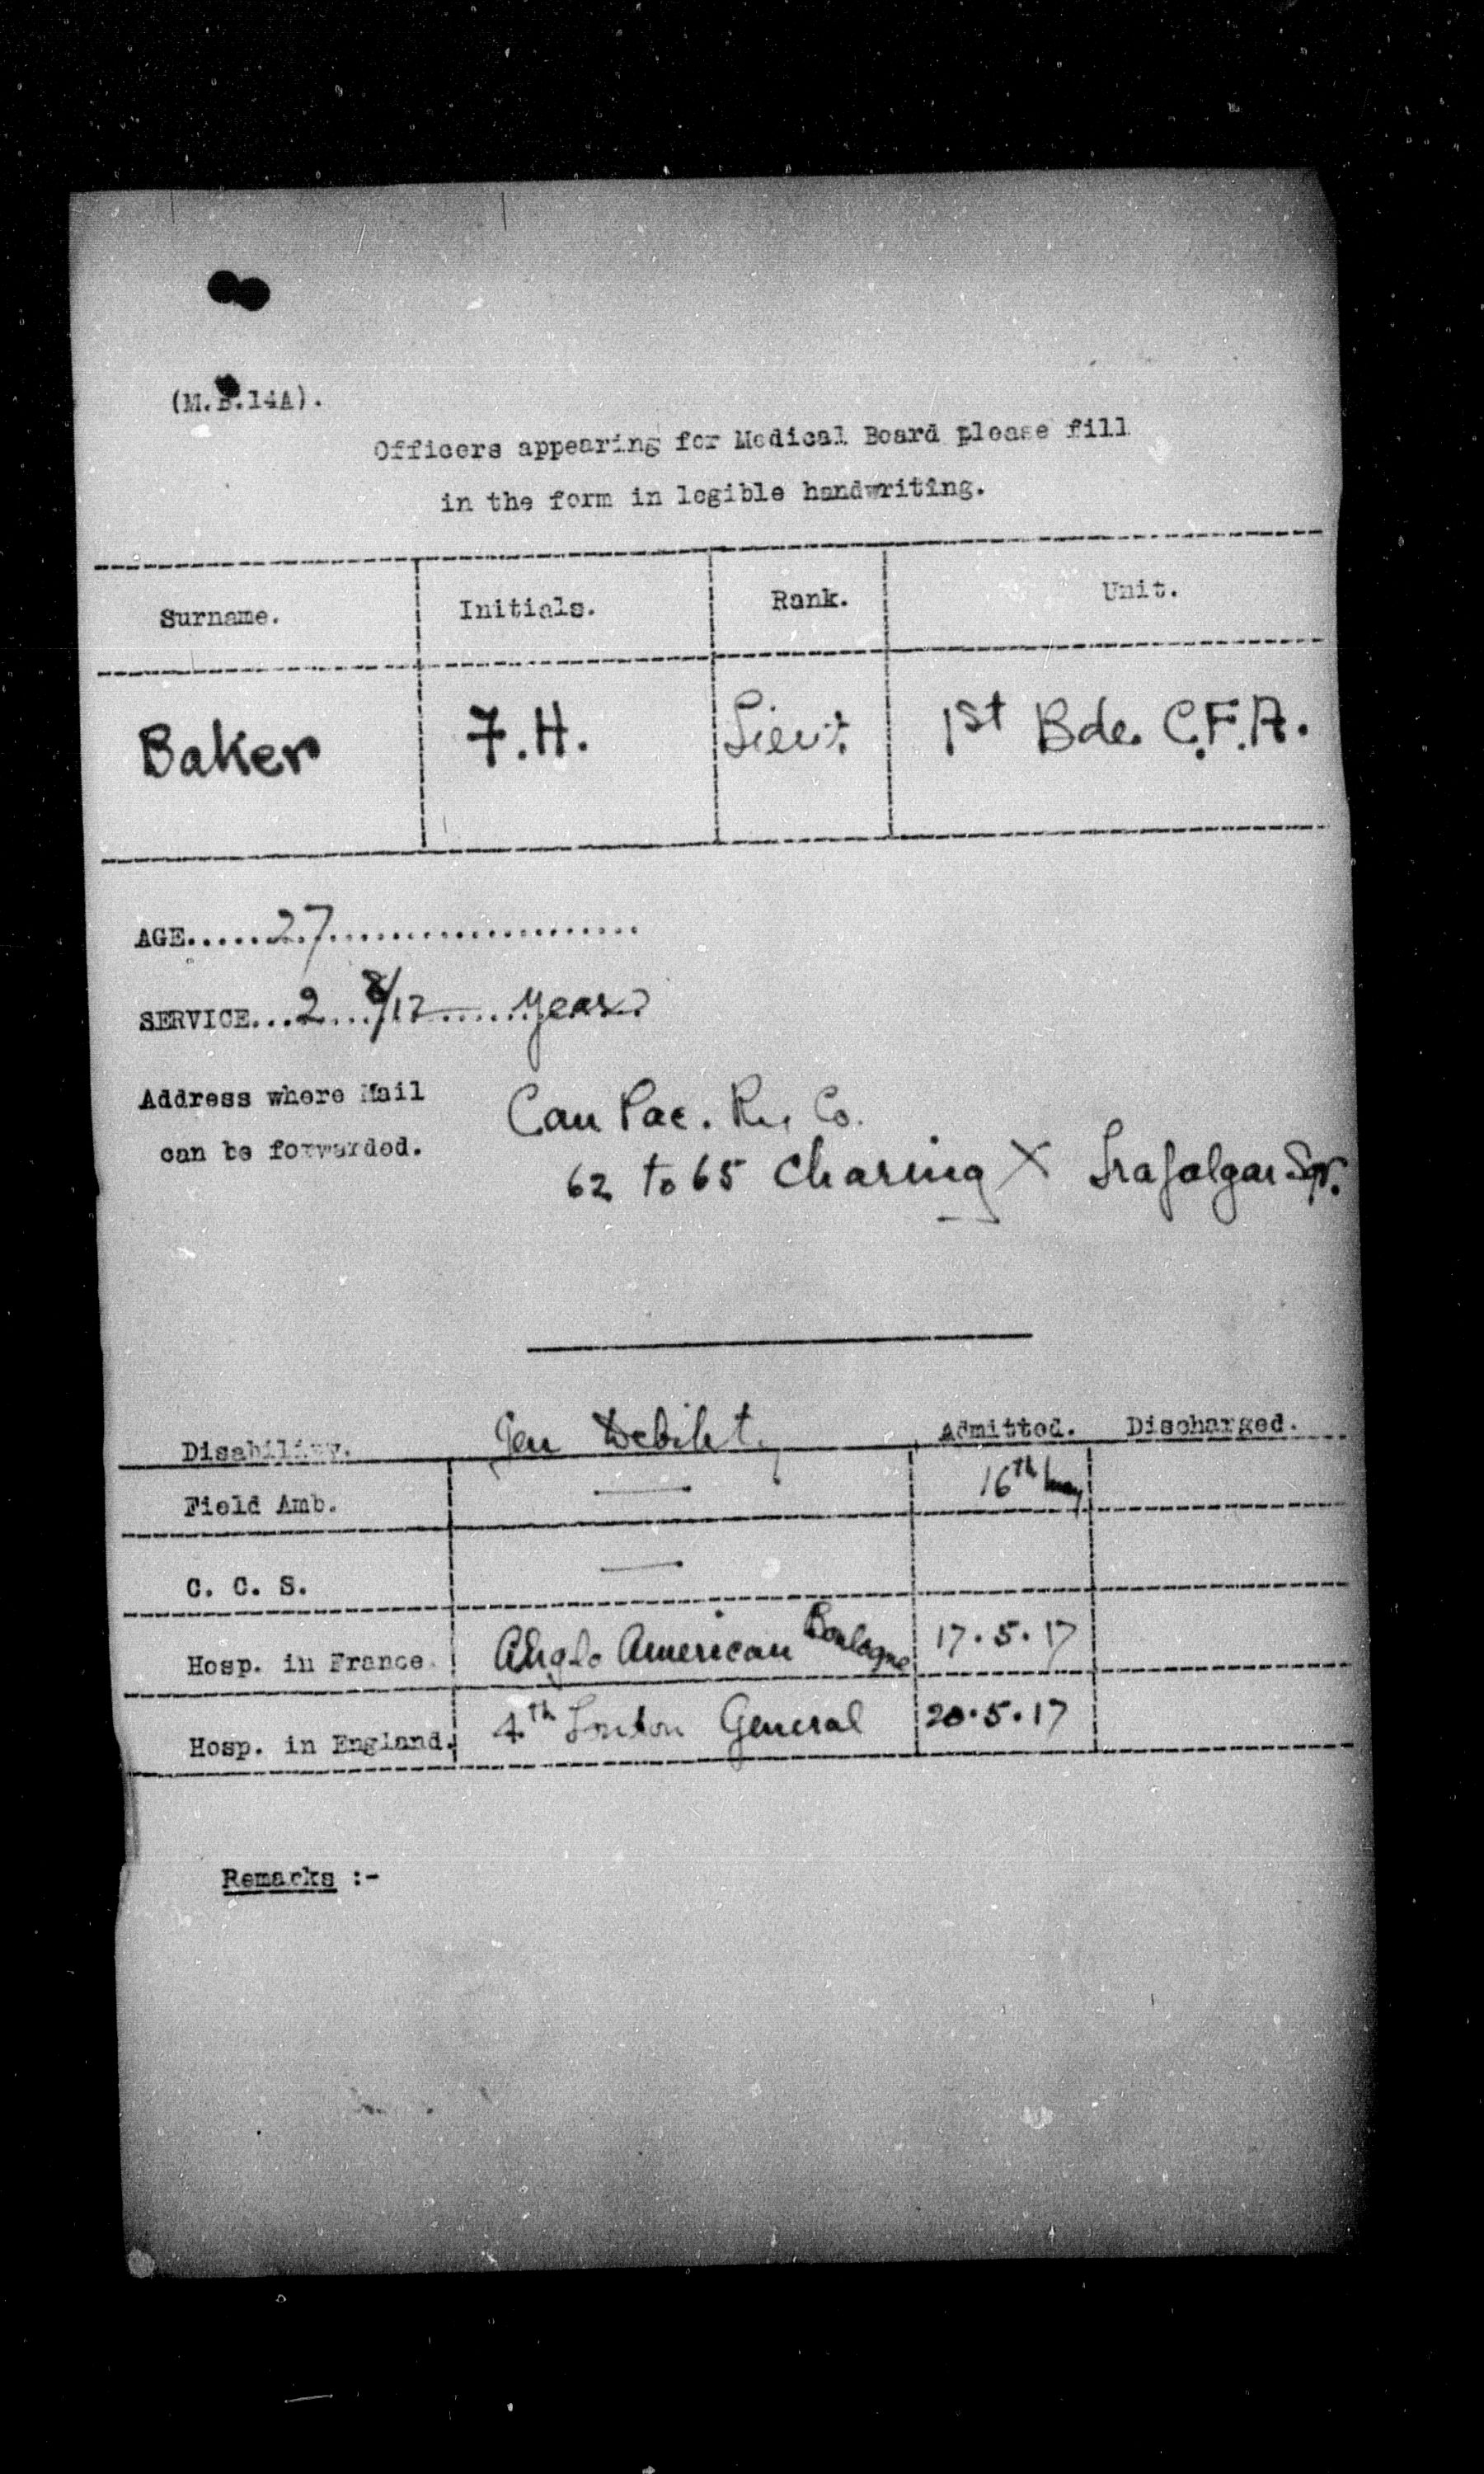 (M.B.14A).
Officers appearing for Medical Board please fill
in the form in legible handwriting.
Surname. Initials. Rank. Unit.
Baker F.H. Lieut 1st Bde. C.F.A.
AGE......27....................
SERVICE...2...8/12......years
Address where Mail Can Pac. Ry. Co.
can be forwarded. 62 to 65 Charing X Trafalgar Sqr.
Disability. Gen Debility Admitted. Discharged.
Field Amb. — 16th May
C. C. S. —
Hosp. in France. Anglo American Boulogne 17.5.17
Hosp. in England. 4th London General 20.5.17
Remarks :-